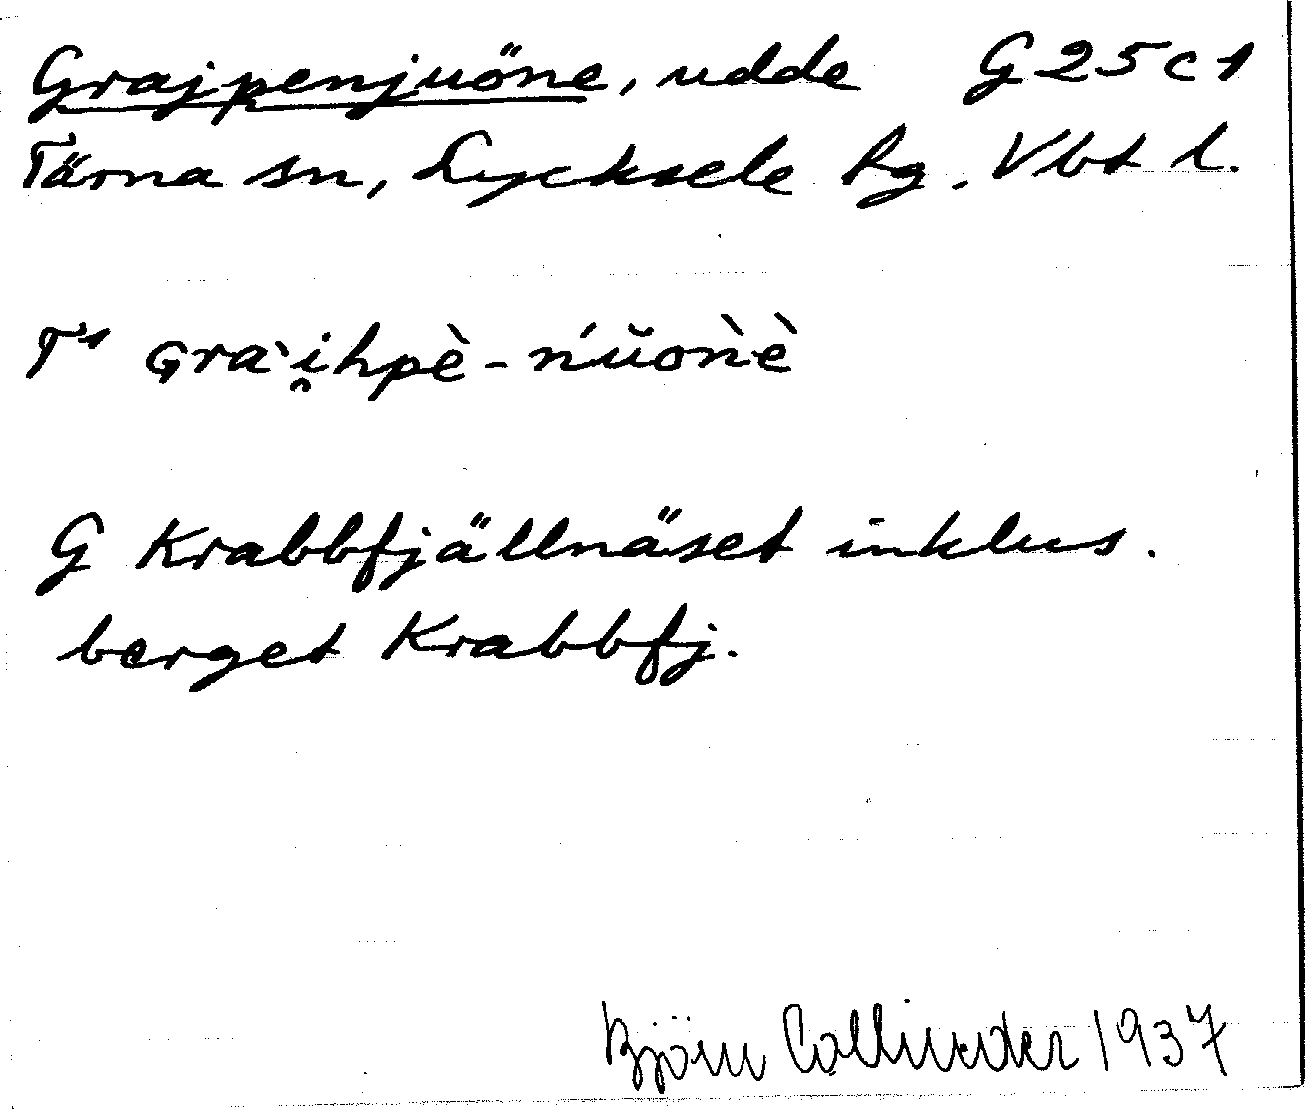 Grajpenjuöne, udde G25c1
Tärna sn, Lycksele lg. Vbt l.
T¹ Gra`i̯hpè-ńŭoǹè
G Krabbfjällnäset inklus.
berget Krabbfj.
Björn Collinder 1937